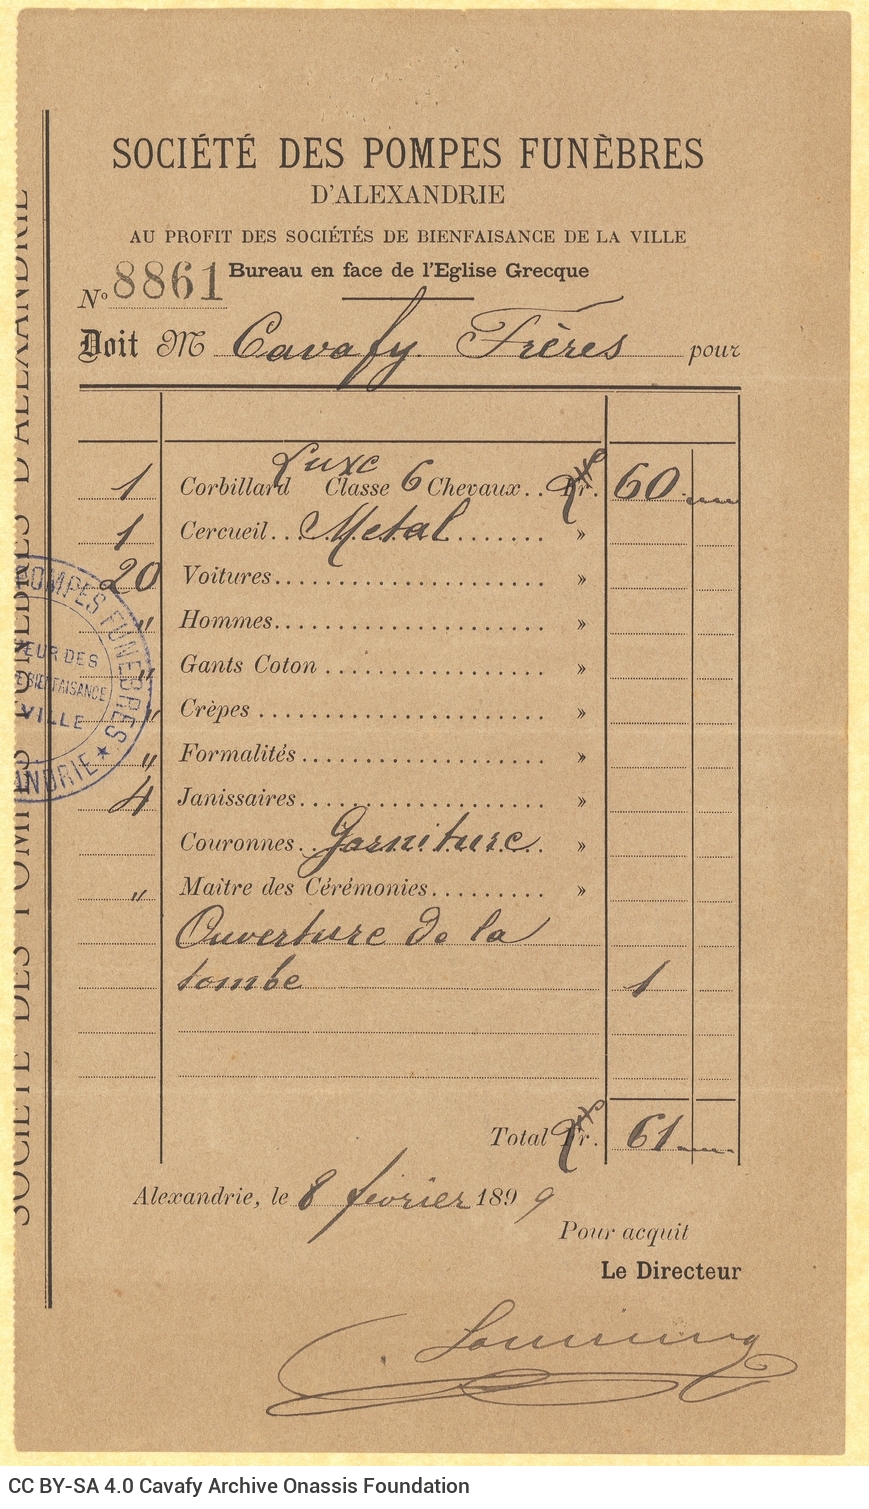 SOCIÉTÉ DES POMPES FUNÈBRES
D'ALEXANDRIE
AU PROFIT DES SOCIÉTÉS DE BIENFAISANCE DE LA VILLE
Bureau en face de l'Eglise Grecque
N° 8861
Doit M Cavafy Frères pour
1 Corbillard Luxe Classe 6 Chevaux .. Fr. 60
1 Cercueil... Metal ....... »
20 Voitures..................... »
" Hommes..................... »
" Gants Coton ................. »
" Crèpes ...................... »
" Formalités ................... »
4 Janissaires................... »
Couronnes.. Garniture »
" Maître des Cérémonies......... »
Ouverture de la
tombe 1
Total Fr. 61
Alexandrie, le 8 février 1899
Pour acquit
Le Directeur
SOCIÉTÉ DES POMPES FUNÈBRES D'ALEXANDRIE
POMPES FUNEBRES
EUR DES
BIENFAISANCE
VILLE
ANDRIE
CC BY-SA 4.0 Cavafy Archive Onassis Foundation